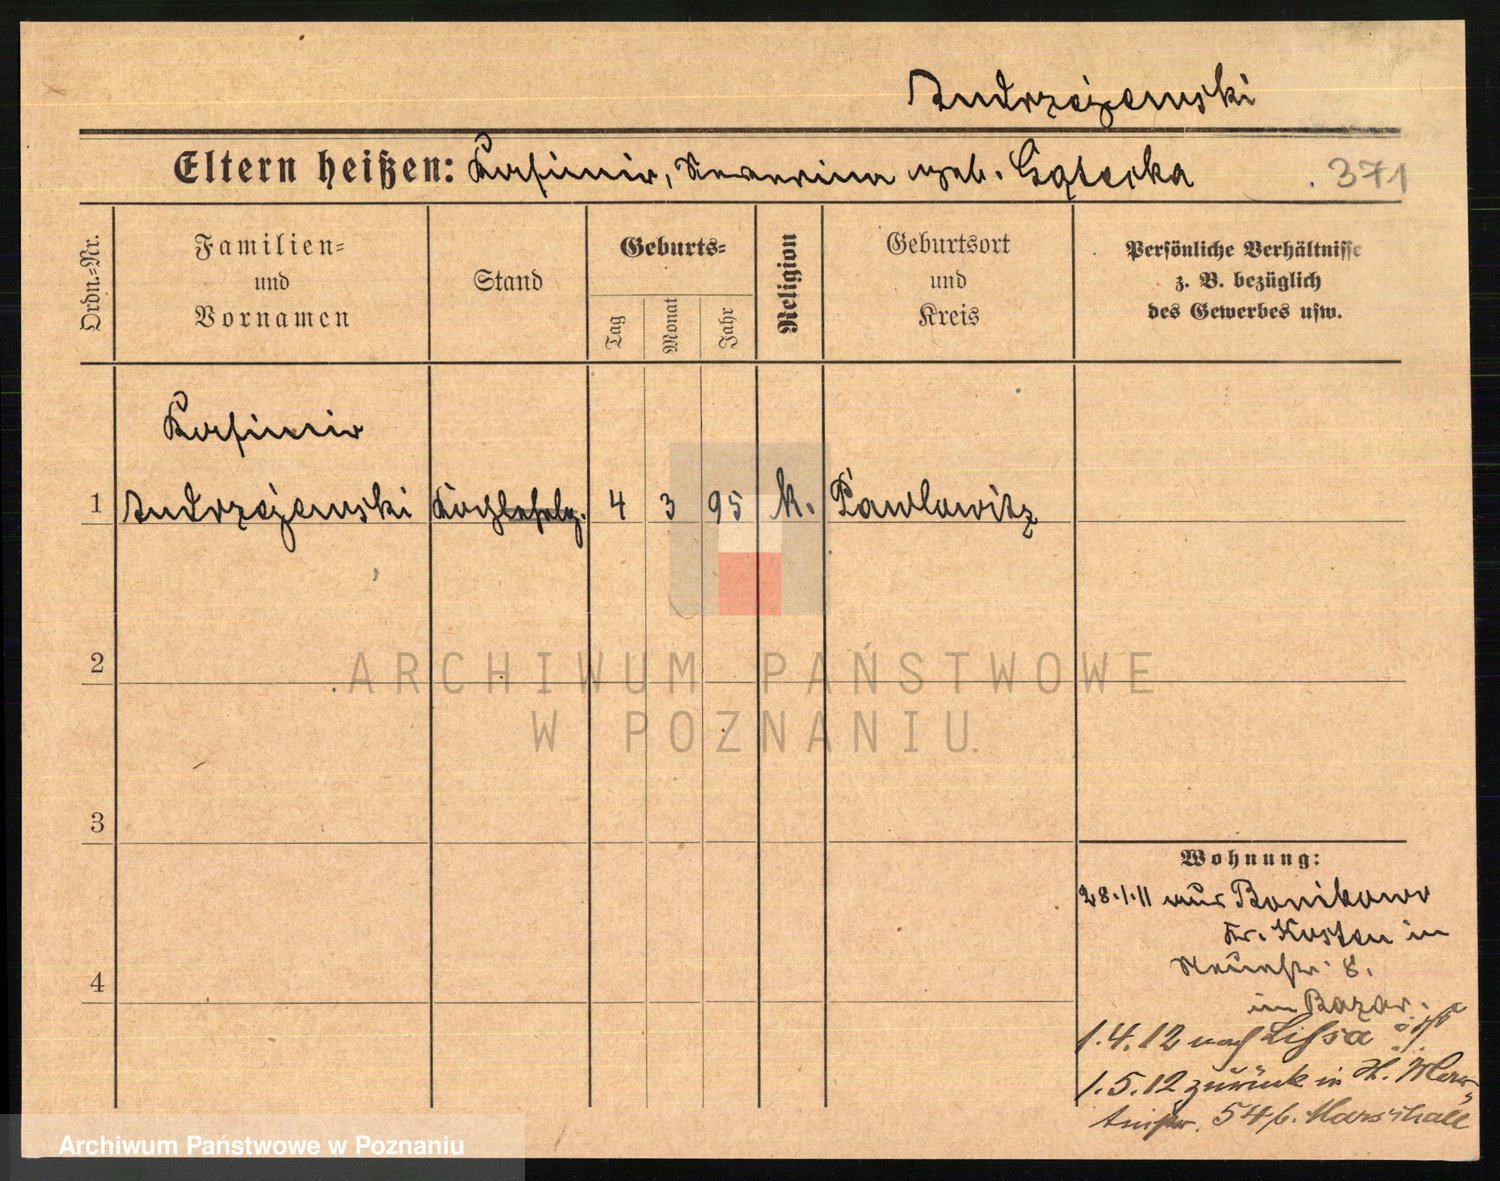 Andrzejewski
Eltern heißen: Kasimir, Severina geb. Gątecka
371
Ordn.-Nr.
Familien-
und
Vornamen
Stand
Geburts-
Tag
Monat
Jahr
Religion
Geburtsort
und
Kreis
Persönliche Verhältnisse
z. B. bezüglich
des Gewerbes usw.
Kasimir
1 Andrzejewski Kochlehrlg. 4 3 95 k. Pawlowitz
2
3
4
Wohnung:
28.1.11 aus Bonikowo
Kr. Kosten in
Neuestr. 8.
im Bazar.
1.4.12 nach Lissa
1.5.12 zurück in St. Mar-
tinstr. 54 b. Marschall
ARCHIWUM PAŃSTWOWE
W POZNANIU
Archiwum Państwowe w Poznaniu